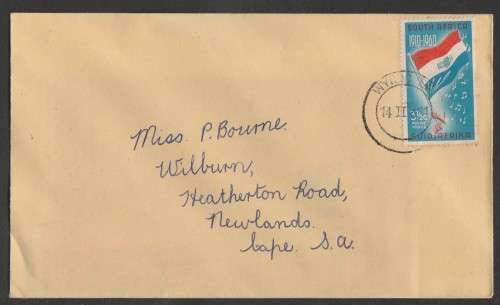 SOUTH AFRICA
1910-1960
SUID-AFRIKA
14 II
Miss. P. Bourne.
Wilburn,
Heatherton Road,
Newlands.
Cape. S.A.